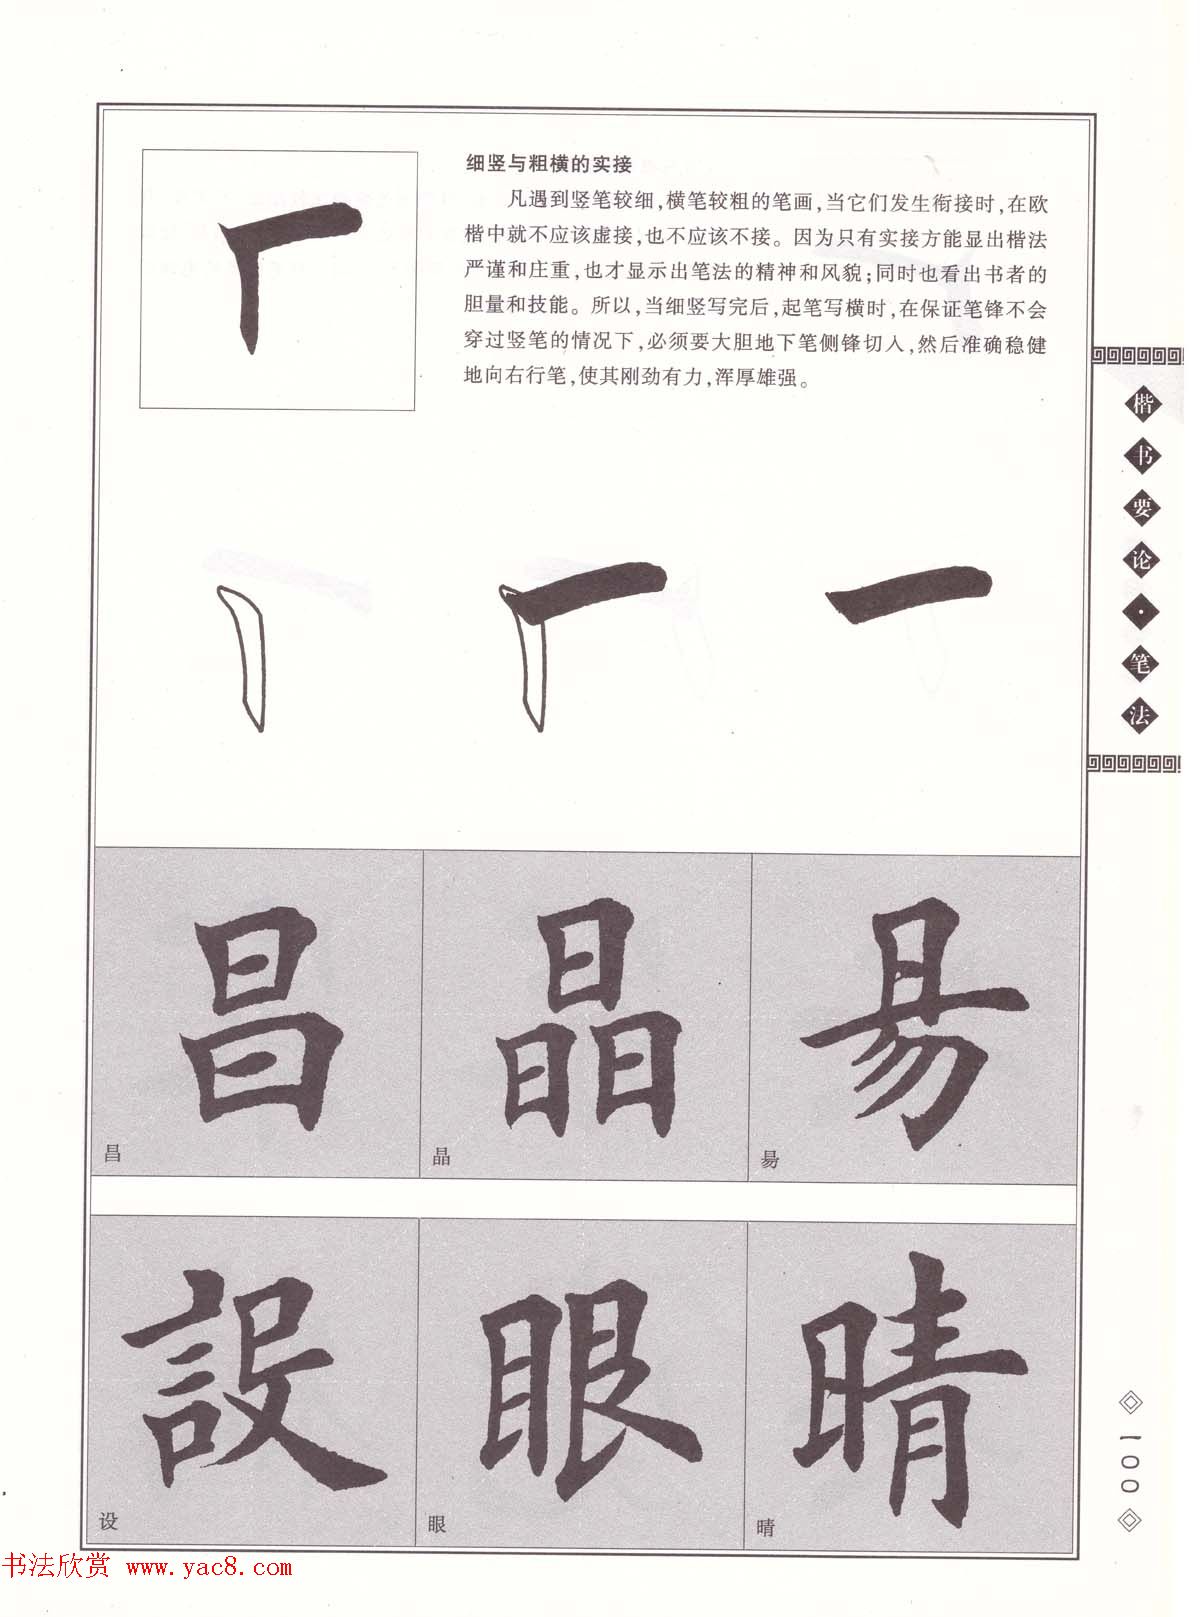 细竖与粗横的实接
凡遇到竖笔较细,横笔较粗的笔画,当它们发生衔接时,在欧
楷中就不应该虚接,也不应该不接。因为只有实接方能显出楷法
严谨和庄重,也才显示出笔法的精神和风貌;同时也看出书者的
胆量和技能。所以,当细竖写完后,起笔写横时,在保证笔锋不会
穿过竖笔的情况下,必须要大胆地下笔侧锋切入,然后准确稳健
地向右行笔,使其刚劲有力,浑厚雄强。
楷书要论·笔法
昌 晶 昜
昌 晶 昜
設 眼 晴
设 眼 晴
一〇〇
书法欣赏 www.yac8.com